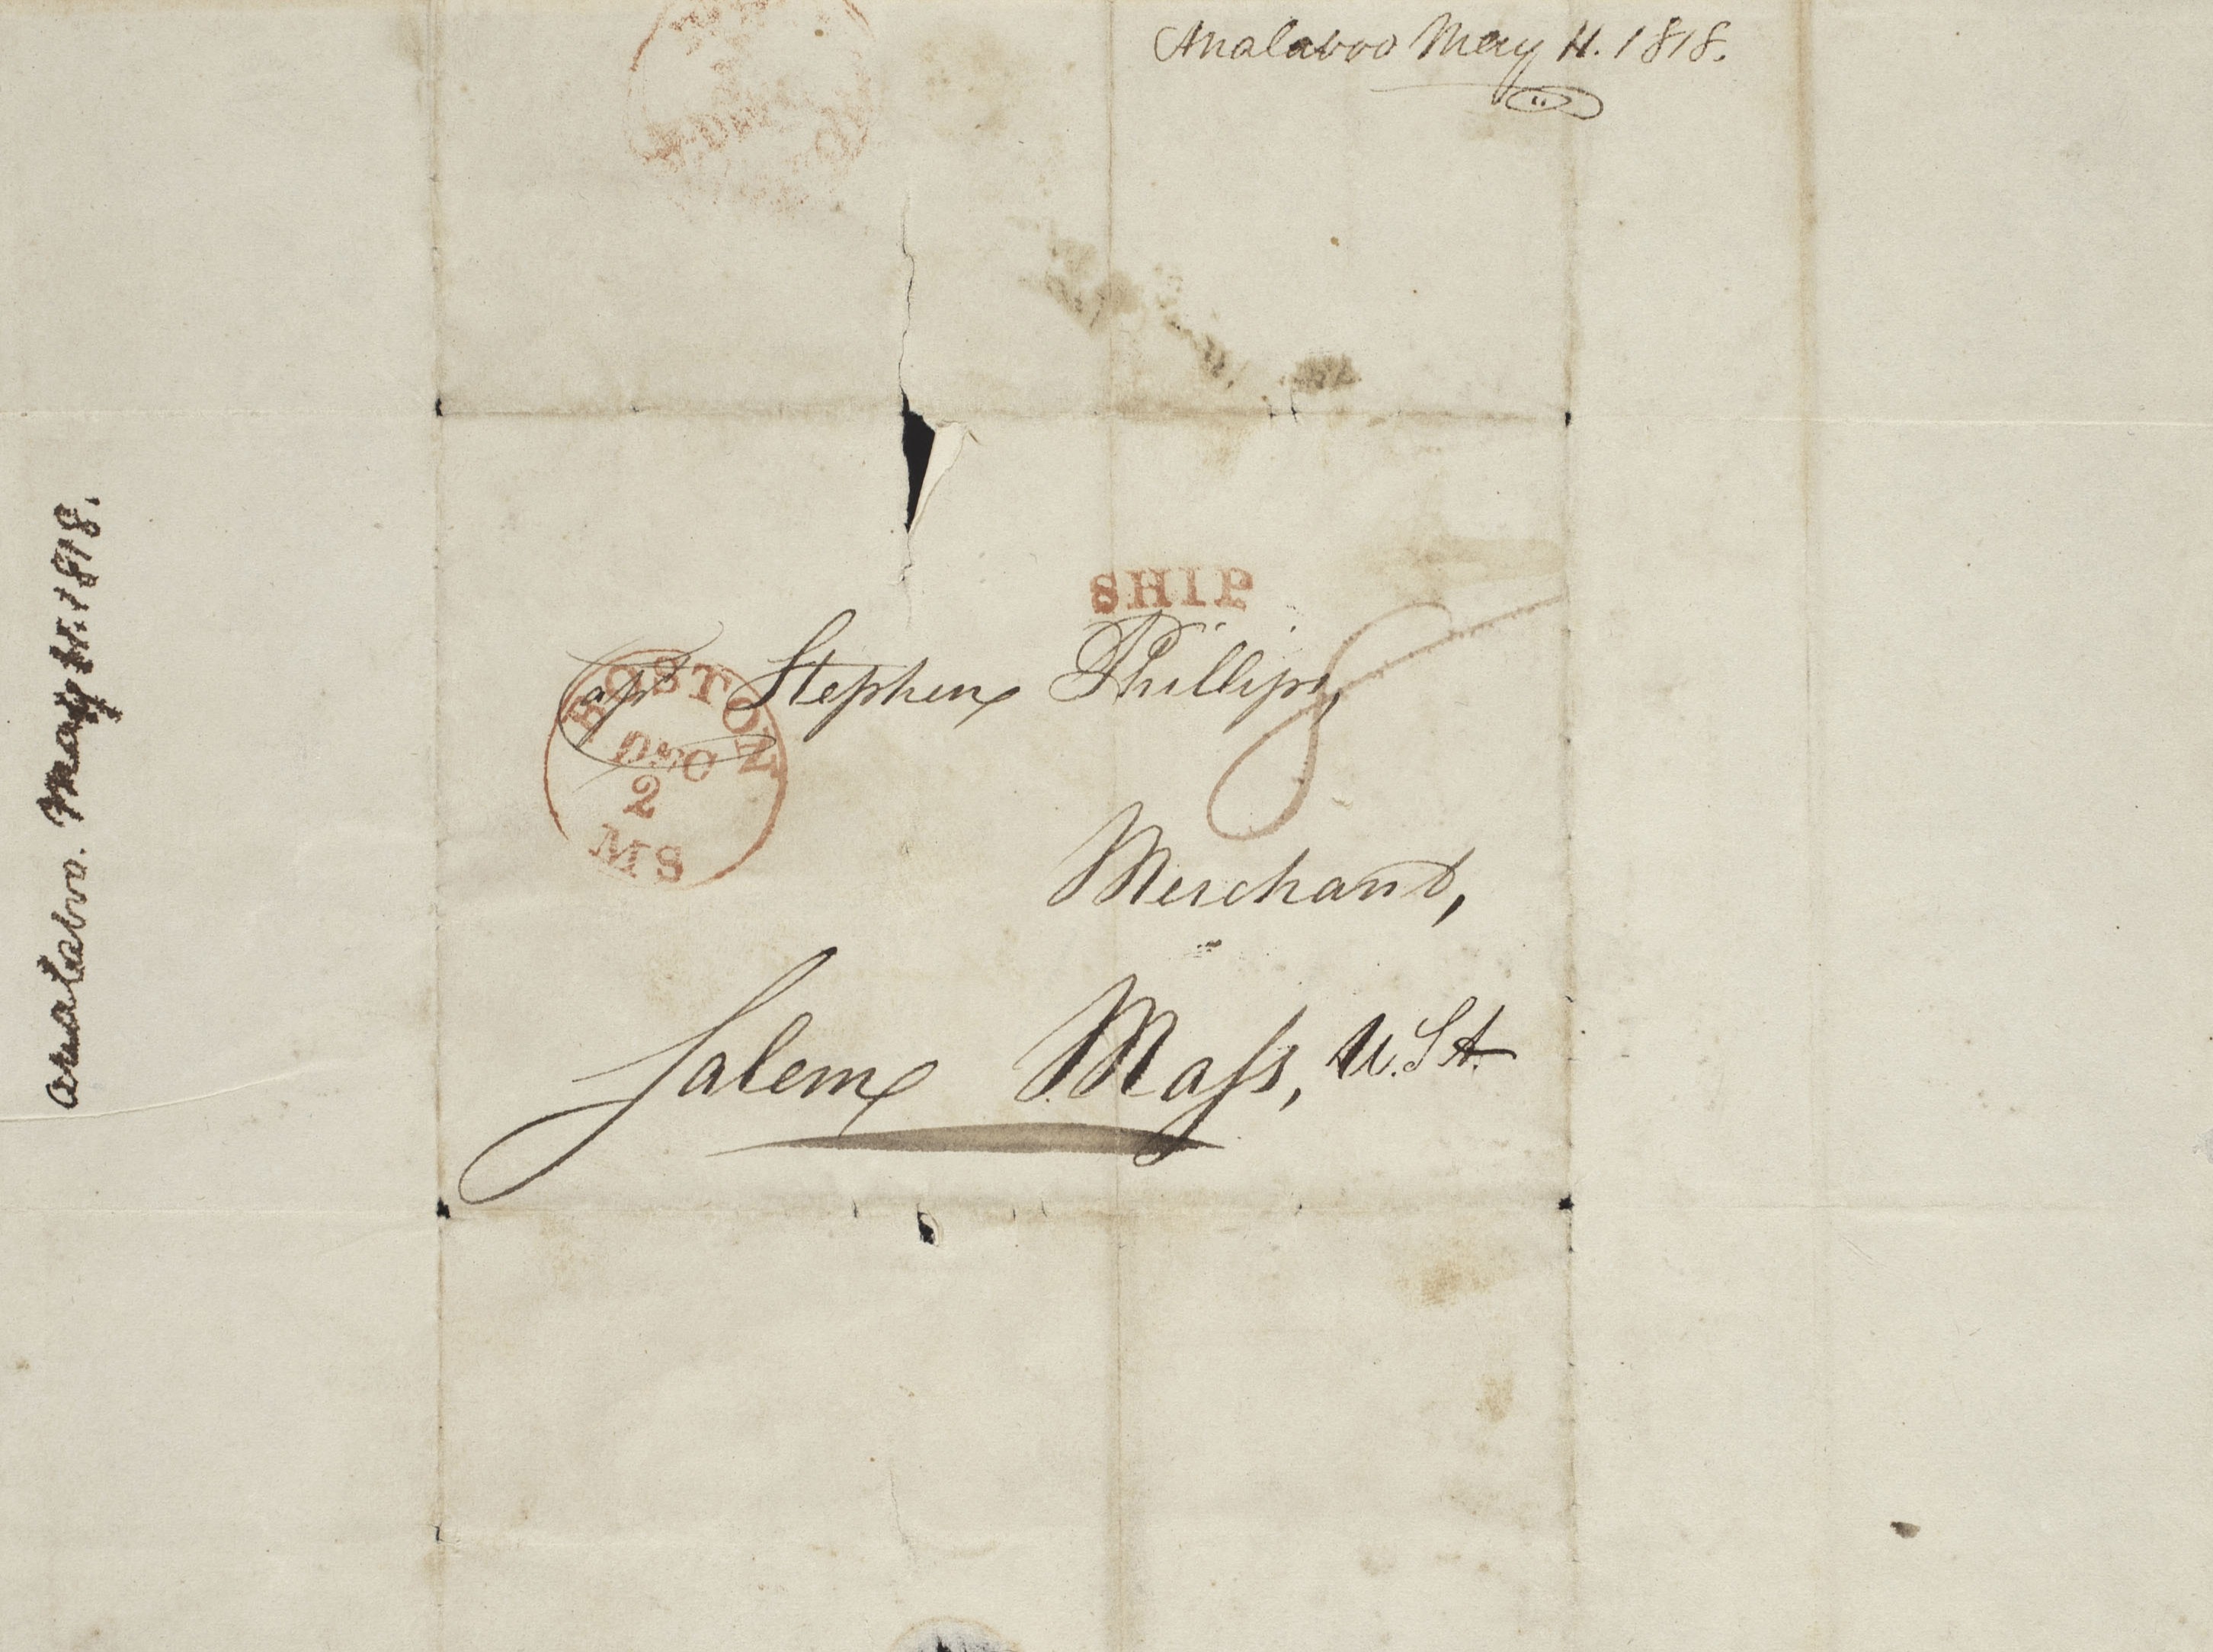 Analaboo May 11. 1818.
SHIP
Capt Stephen Phillips,
BOSTON
DEC
2
MS
8
Merchant,
Salem Mass, U.S.A.
Analaboo. May 11. 1818.